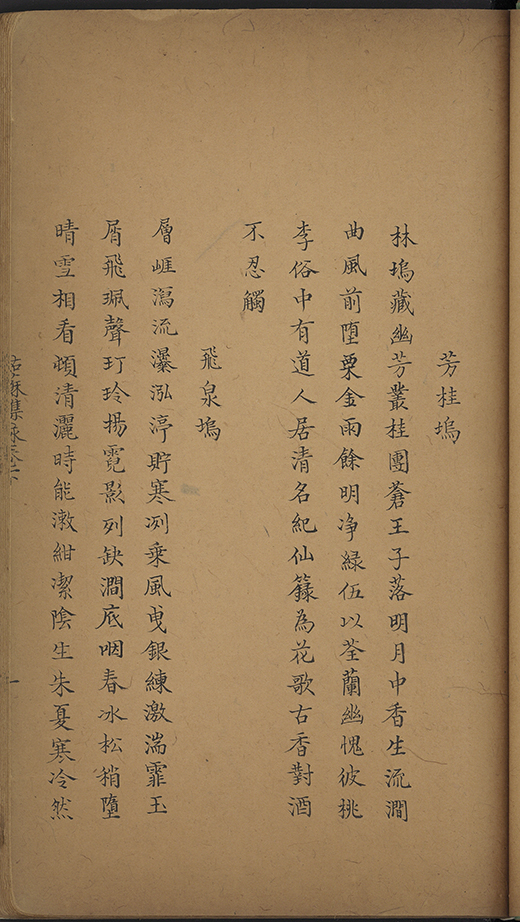 芳桂塢
林塢藏幽芳叢桂團蒼王子落明月中香生流澗
曲風前墮粟金雨餘明净緑伍以荃蘭幽愧彼桃
李俗中有道人居清名紀仙籙為花歌古香對酒
不忍觸
飛泉塢
層崕瀉流瀑泓渟貯寒冽乘風曵銀練激湍霏玉
屑飛珮聲玎玲揚霓影列缺澗底咽春冰松稍墮
晴雪相看頓清灑時能漱紺潔陰生朱夏寒冷然
姑蘇集詠卷下
一